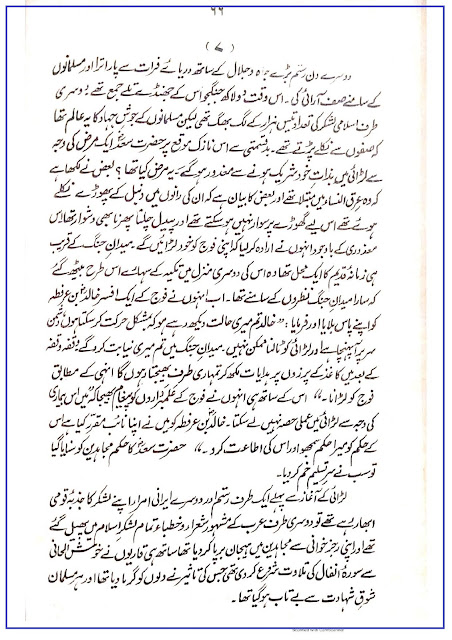 ۶۶
(۷)
دوسرے دن رستم بڑے جاہ و جلال کے ساتھ دریائے فرات سے پار اترا اور مسلمانوں
کے سامنے صف آرائی کی۔ اس وقت دو لاکھ جنگجو اس کے جھنڈے تلے جمع تھے؛ دوسری
طرف اسلامی لشکر کی تعداد تیس ہزار کے لگ بھگ تھی لیکن مسلمانوں کے جوش جہاد کا یہ عالم تھا
کہ صفوں سے نکلے پڑتے تھے۔ بدقسمتی سے اس نازک موقع پر حضرت سعدؓ ایک مرض کی وجہ
سے لڑائی میں بذات خود شریک ہونے سے معذور ہوگئے۔ یہ مرض کیا تھا؟ بعض نے لکھا ہے
کہ وہ عرق النسا میں مبتلا تھے اور بعض کا بیان ہے کہ ان کی رانوں میں دنبل کے پھوڑے نکلے
ہوئے تھے اس لیے گھوڑے پر سوار نہیں ہو سکتے تھے اور پیدل چلنا پھرنا بھی دشوار تھا۔ اس
معذوری کے باوجود انہوں نے ارادہ کر لیا کہ اپنی فوج کو خود لڑائیں گے۔ میدان جنگ کے قریب
ہی زمانۂ قدیم کا ایک محل تھا وہ اس کی دوسری منزل میں تکیہ کے سہارے اس طرح بیٹھ گئے
کہ سارا میدان جنگ نظروں کے سامنے تھا۔ اب انہوں نے فوج کے ایک افسر خالدؓ بن عرفطہ
کو اپنے پاس بلایا اور فرمایا: ”خالد تم میری حالت دیکھ رہے ہو کہ بمشکل حرکت کر سکتا ہوں۔ دشمن
سر پر آ پہنچا ہے اور لڑائی کو ٹالنا ممکن نہیں۔ میدان جنگ میں تم میری نیابت کرو گے۔ وقفہ وقفہ
کے بعد میں کاغذ کے پرزوں پر ہدایات لکھ کر تمہاری طرف بھیجتا رہوں گا انہی کے مطابق
فوج کو لڑانا۔“ اس کے ساتھ ہی انہوں نے فوج کے علمبرداروں کو پیغام بھیجا کہ ”میں اس بیماری
کی وجہ سے لڑائی میں عملی حصہ نہیں لے سکتا۔ خالدؓ بن عرفطہ کو میں نے اپنا نائب مقرر کیا ہے اس
کے حکم کو میرا حکم سمجھو اور اس کی اطاعت کرو۔“ حضرت سعدؓ کا حکم مجاہدین کو سنایا گیا
تو سب نے سر تسلیم خم کر دیا۔
لڑائی کے آغاز سے پہلے ایک طرف رستم اور دوسرے ایرانی امرا اپنے لشکر کا جذبۂ قومی
ابھار رہے تھے تو دوسری طرف عرب کے مشہور شعراء و خطباء تمام لشکر اسلام میں پھیل گئے
تھے اور اپنی رجز خوانی سے مجاہدین میں ہیجان برپا کر دیا تھا ساتھ ہی قاریوں نے خوش الحانی
سے سورۂ انفال کی تلاوت شروع کر دی تھی جس کی تاثیر نے دلوں کو گرما دیا تھا اور ہر مسلمان
شوق شہادت سے بے تاب ہو گیا تھا۔